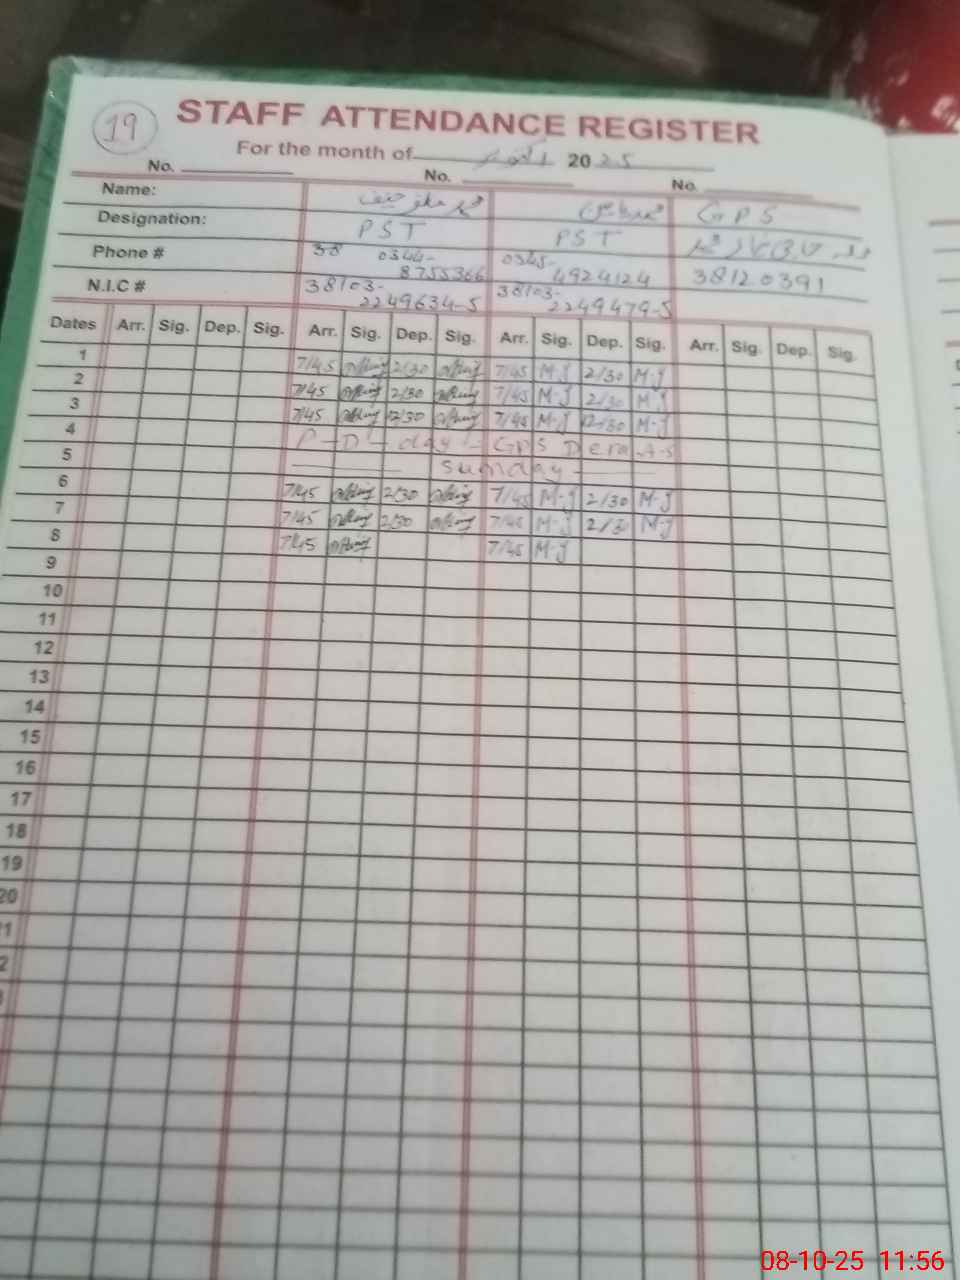 19
STAFF ATTENDANCE REGISTER
For the month of اکتوبر 2025
No. No. No.
Name: محمد حنیف محمد GPS
Designation: PST PST
Phone # 38 0344-8755366 0345-4924124 38120391
N.I.C # 38103-2249634-5 38103-2249479-5
Dates Arr. Sig. Dep. Sig. Arr. Sig. Dep. Sig. Arr. Sig. Dep. Sig. Arr. Sig. Dep. Sig.
1 7/45 2/30 7/45 M-J 2/30 M-J
2 7/45 2/30 7/45 M-J 2/30 M-J
3 7/45 12/30 7/45 M-J 12/30 M-J
4 P-D-day GPS Dera
5 Sunday
6 7/45 2/30 7/45 M-J 2/30 M-J
7 7/45 2/30 7/45 M-J 2/30 M-J
8 7/45 7/45 M-J
9
10
11
12
13
14
15
16
17
18
19
20
1
2
08-10-25 11:56